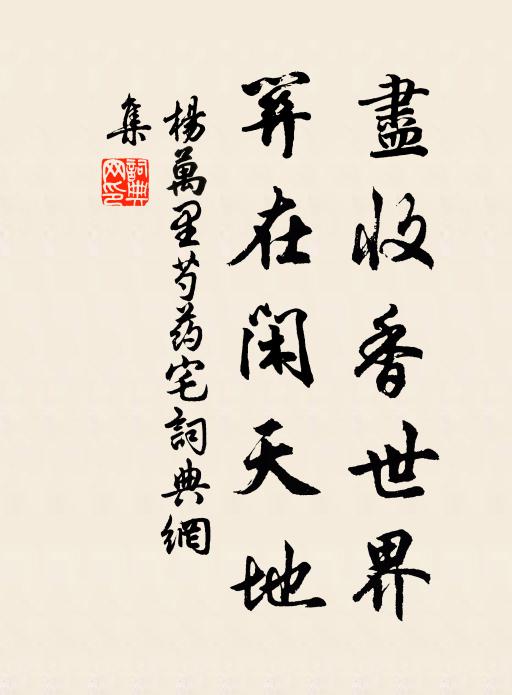 盡收香世界
羿在閑天地
楊萬里芍药宅詞典網
集
詞典網印